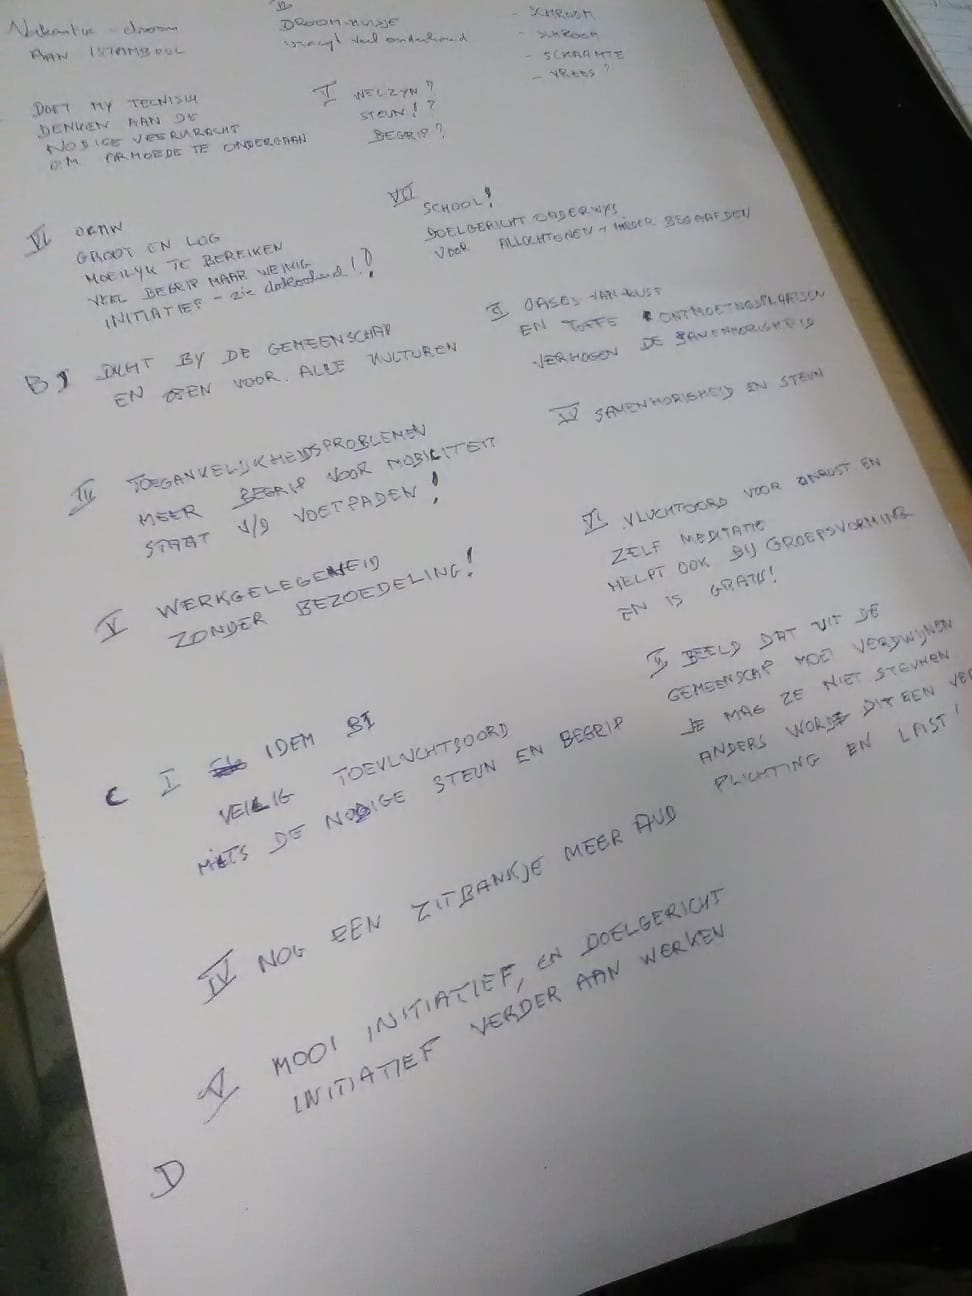 Vakantie - droom
AAN ISTAMBOOL
II
DROOM-HUISJE
vraagt veel onderhoud
- SCHROOM
- SCHROOM
- SCHAAMTE
- VREES?
DOET MY
DENKEN AAN DE
NODIGE VEERKRACHT
O.M. ARMOEDE TE ONDERGAAN
V WELZYN?
STEUN!?
BEGRIP?
VI OCMW
GROOT EN LOG
MOEILYK TE BEREIKEN
VEEL BEGRIP MAAR WEINIG
INITIATIEF - zie !!
VII
SCHOOL!
DOELGERICHT ONDERWYS
VOOR ALLOCHTONEN + MINDER BEGAAFDEN
B I DICHT BY DE GEMEENSCHAP
EN OPEN VOOR ALLE KULTUREN
II OASES VAN RUST
EN TOFFE ONTMOETINGSPLAATSEN
VERHOGEN DE SAMENHORIGHEID
III TOEGANKELIJKHEIDSPROBLEMEN
MEER BEGRIP VOOR MOBILITEIT
STAAT V/D VOETPADEN!
IV SAMENHORIGHEID EN STEUN
V WERKGELEGENHEID
ZONDER BEZOEDELING!
VI VLUCHTOORD VOOR ONRUST EN
ZELF MEDITATIE
HELPT OOK BIJ GROEPSVORMING
EN IS GRATIS!
C I IDEM BI
VEILIG TOEVLUCHTSOORD
MITS DE NODIGE STEUN EN BEGRIP
II BEELD DAT UIT DE
GEMEENSCHAP MOET VERDWIJNEN
JE MAG ZE NIET STEUNEN
ANDERS WORDT DIT EEN VER
PLICHTING EN LAST!
IV NOG EEN ZITBANKJE MEER AUB
V MOOI INITIATIEF, EN DOELGERICHT
INITIATIEF VERDER AAN WERKEN
D